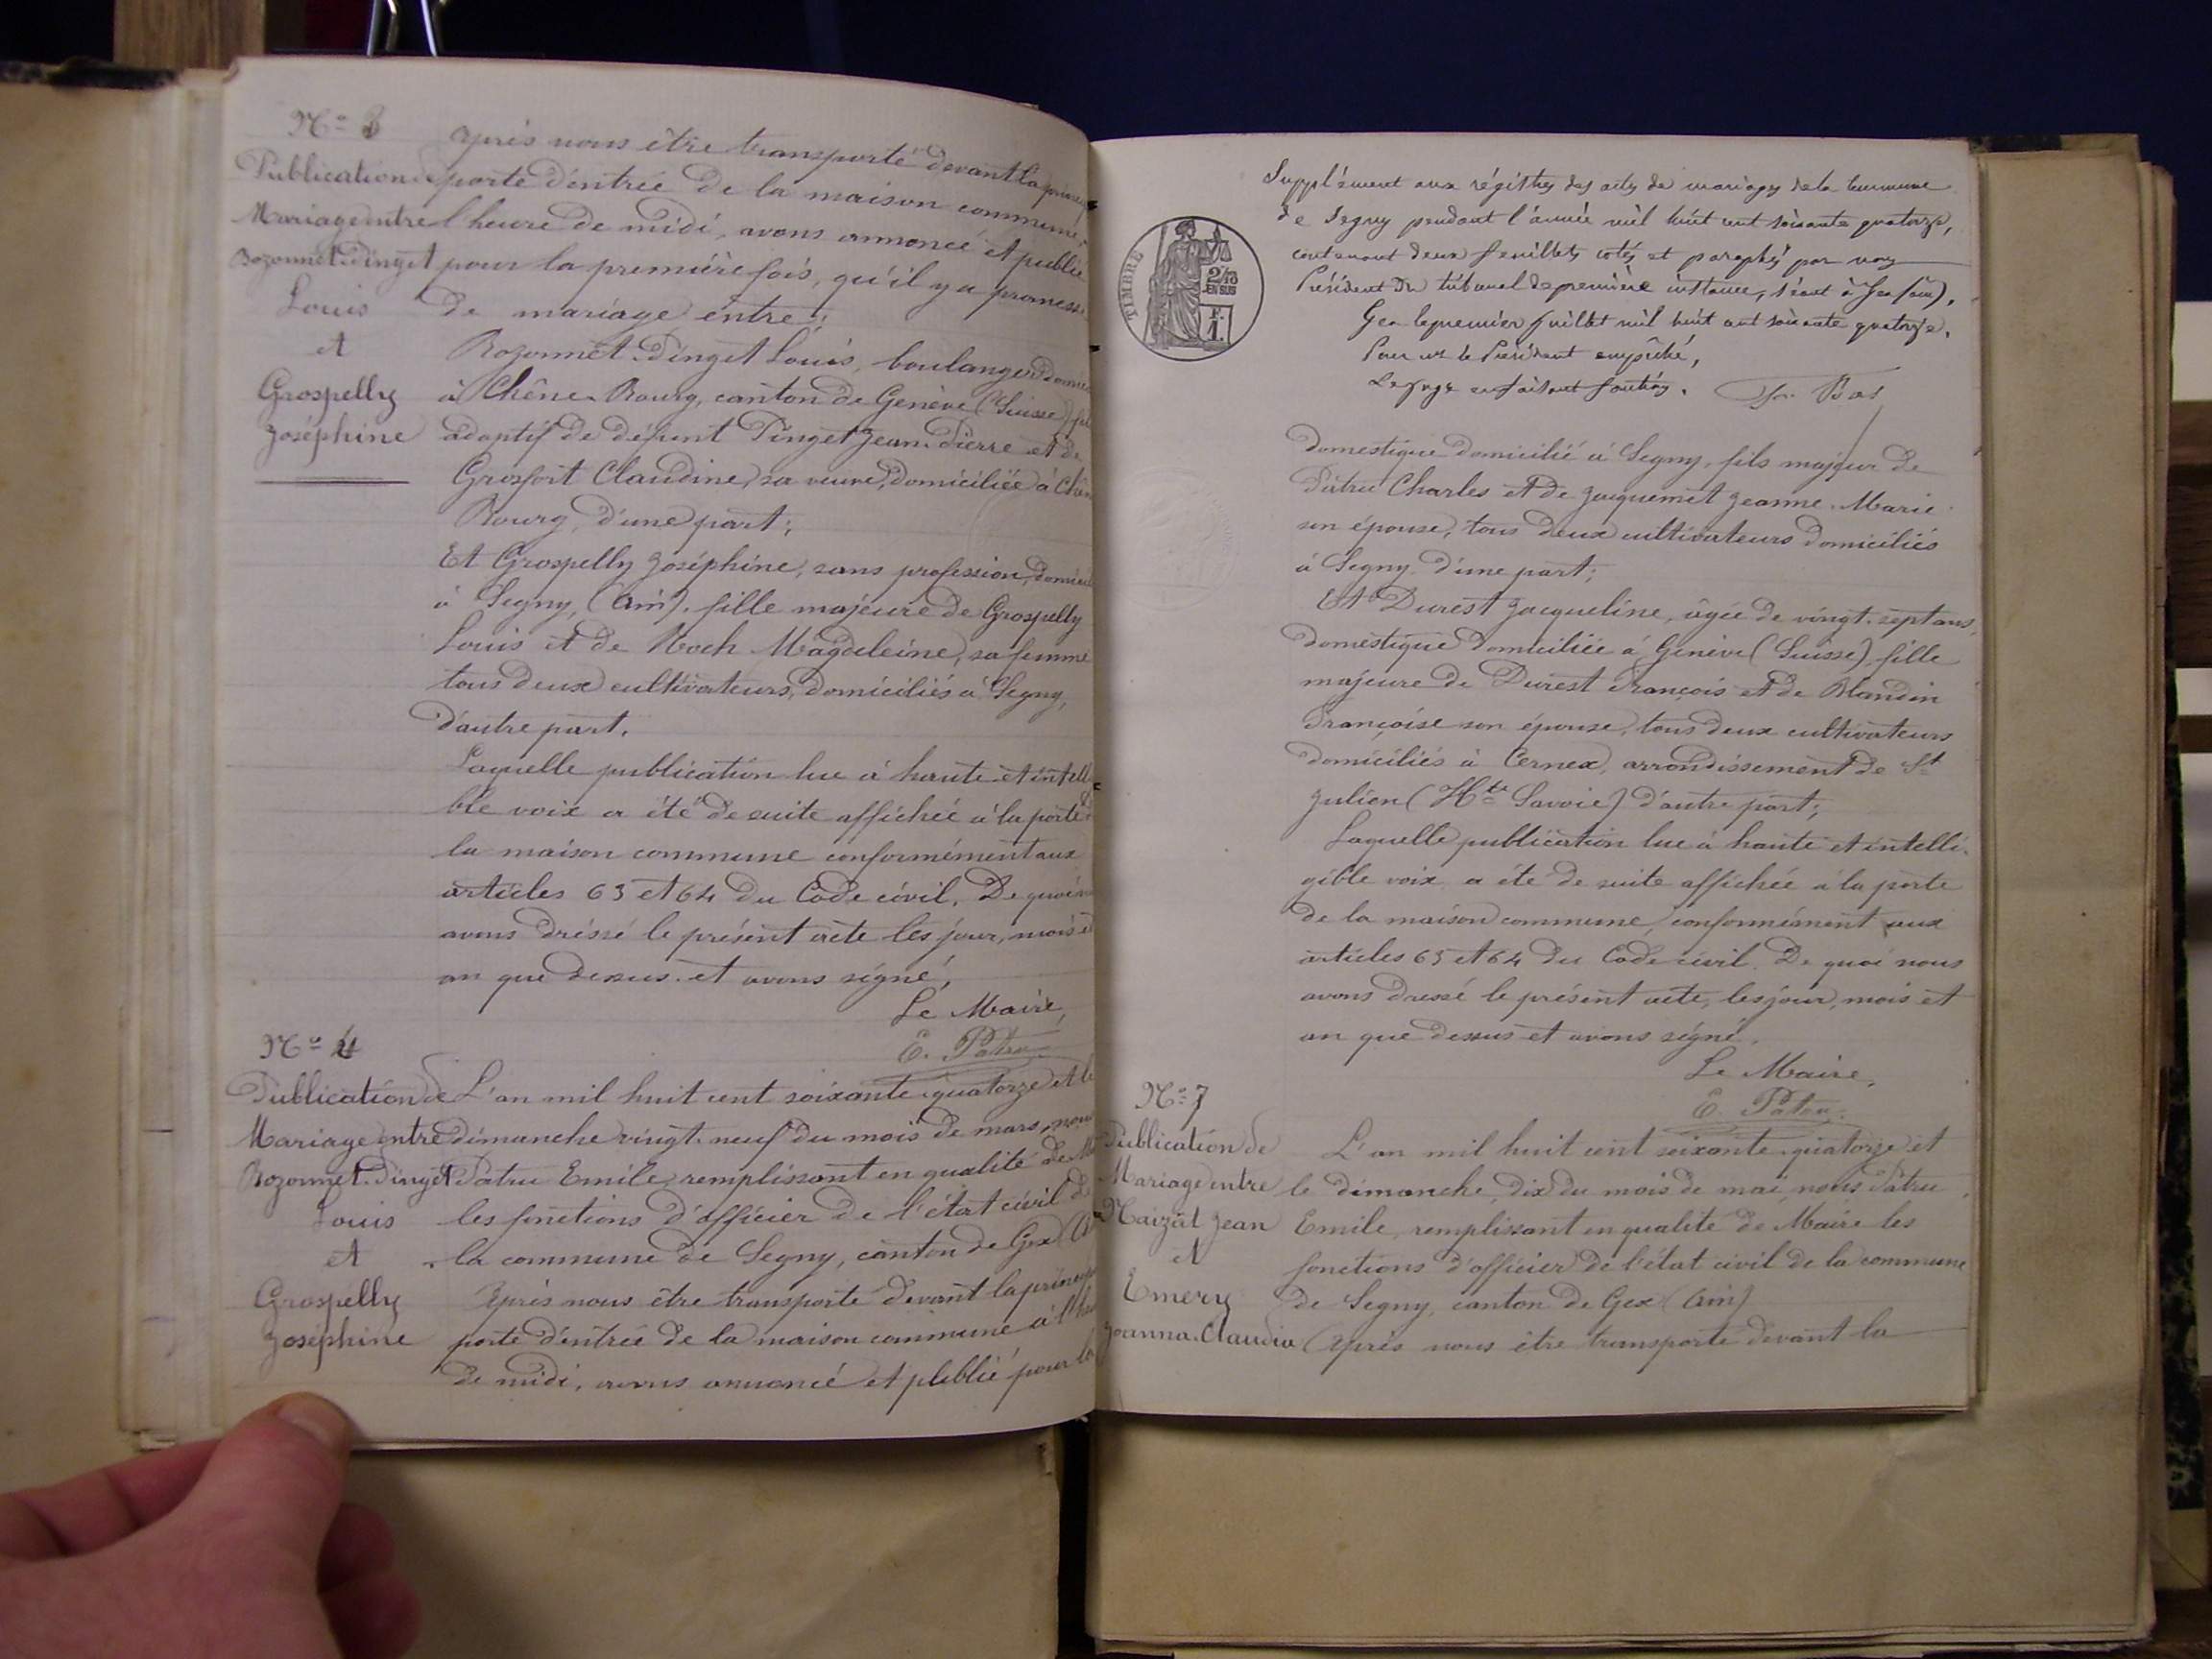 Nº 3
Publication de
Mariage entre
Bozonnet-Pinget
Louis
et
Grospelly
Joséphine
Après nous être transporté devant la
porte d'entrée de la maison commune,
l'heure de midi, avons annoncé et publié
pour la première fois, qu'il y a promesse
de mariage entre;
Bozonnet-Pinget Louis, boulanger
à Chêne-Bourg, canton de Genève (Suisse)
adoptif de défunt Pinget Jean-Pierre et de
Grosfort Claudine, sa veuve, domiciliée à
Bourg, d'une part;
Et Grospelly Joséphine, sans profession,
à Segny, (Ain), fille majeure de Grospelly
Louis et de Roch Magdeleine, sa femme
tous deux cultivateurs, domiciliés à Segny,
d'autre part.
Laquelle publication lue à haute et intelli
ble voix a été de suite affichée à la porte de
la maison commune conformément aux
articles 63 et 64 du Code civil. De quoi
avons dressé le présent acte les jour, mois et
an que dessus et avons signé,
Le Maire,
E. Patru
Nº 4
Publication de
Mariage entre
Bozonnet-Pinget
Louis
et
Grospelly
Joséphine
L'an mil huit cent soixante-quatorze et le
dimanche vingt-neuf du mois de mars, nous
Patru Emile, remplissant en qualité de
les fonctions d'officier de l'état civil de
la commune de Segny, canton de Gex
Après nous être transporté devant la
porte d'entrée de la maison commune à
de midi, avons annoncé et plublié pour la
Supplément aux régistres des actes de mariages de la commune
de Segny pendant l'année mil huit cent soixante quatorze,
contenant deux feuillets cotés et paraphés par nous
Président du tribunal de première instance, séant à Gex (Ain),
Gex le premier juillet mil huit cent soixante quatorze.
Pour Mr le Président empêché,
Le juge en faisant fonctions.
TIMBRE
2/10
EN SUS
F.
1.
domestique domicilié à Segny, fils majeur de
Patru Charles et de Jacquemet Jeanne-Marie
son épouse, tous deux cultivateurs domiciliés
à Segny d'une part;
Et Durest Jacqueline, âgée de vingt-sept ans,
domestique domiciliée à Genève (Suisse), fille
majeure de Durest François et de Blandin
Françoise son épouse, tous deux cultivateurs
domiciliés à Cernex, arrondissement de St
Julien (Hte Savoie) d'autre part;
Laquelle publication lue à haute et intelli-
gible voix a été de suite affichée à la porte
de la maison commune, conformément aux
articles 63 et 64 du Code civil. De quoi nous
avons dressé le présent acte, les jour, mois et
an que dessus et avons signé.
Le Maire,
E. Patru
Nº 7
Publication de
Mariage entre
Maizat Jean
et
Emery
Joanna-Claudia
L'an mil huit cent soixante-quatorze et
le dimanche, dix du mois de mai, nous Patru
Emile, remplissant en qualité de Maire les
fonctions d'officier de l'état civil de la commune
de Segny, canton de Gex (Ain)
Après nous être transporté devant la